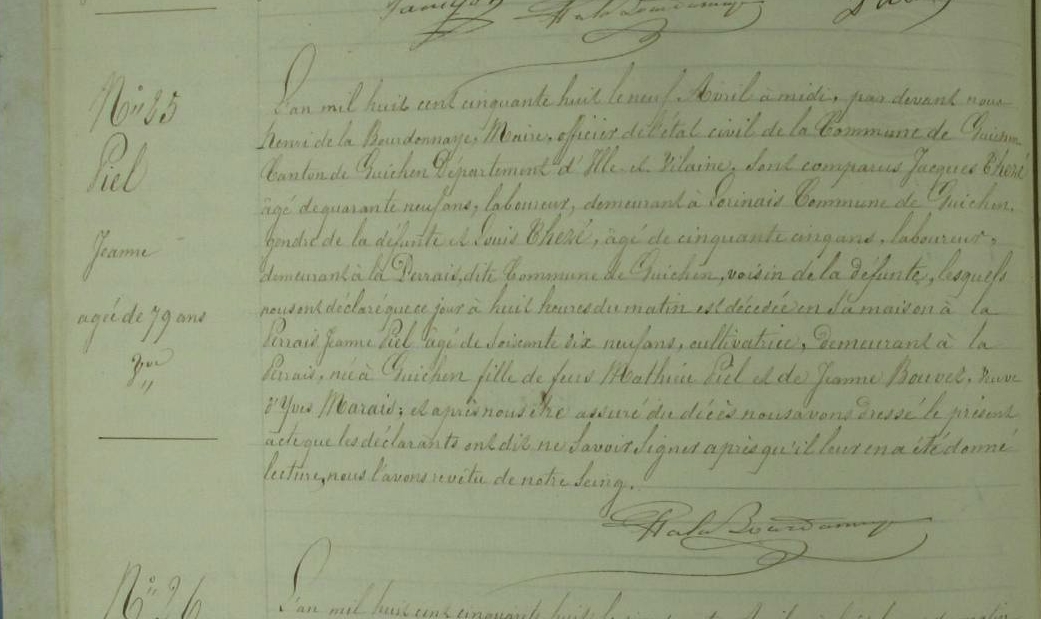 N° 25
Piel
Jeanne
agée de 79 ans
L'an mil huit cent cinquante huit le neuf Avril à midi, par devant nous
henri de la Bourdonnaye, Maire, officier de l'état civil de la Commune de Guichen
Canton de Guichen Département d'Ille et Vilaine, Sont comparus Jacques Thezé
âgé de quarante neuf ans, laboureur, demeurant à Commune de Guichen,
gendre de la défunte et Louis Thezé, âgé de cinquante cinq ans, laboureur,
demeurant à la Perrais, dite Commune de Guichen, voisin de la défunte, lesquels
nous ont déclaré que ce jour à huit heures du matin est décedée en sa maison à la
Perrais Jeanne Piel âgé de soixante dix neuf ans, cultivatrice, demeurant à la
Perrais, né à Guichen fille de feus Mathieu Piel et de Jeanne Bouvet, veuve
d'Yves Marais; et après nous être assuré du décès nous avons dressé le présent
acte que les déclarants ont dit ne savoir signer après qu'il leur en a été donné
lecture, nous l'avons revêtu de notre seing.
H de la Bourdonnaye
N° 26
L'an mil huit cent cinquante huit le